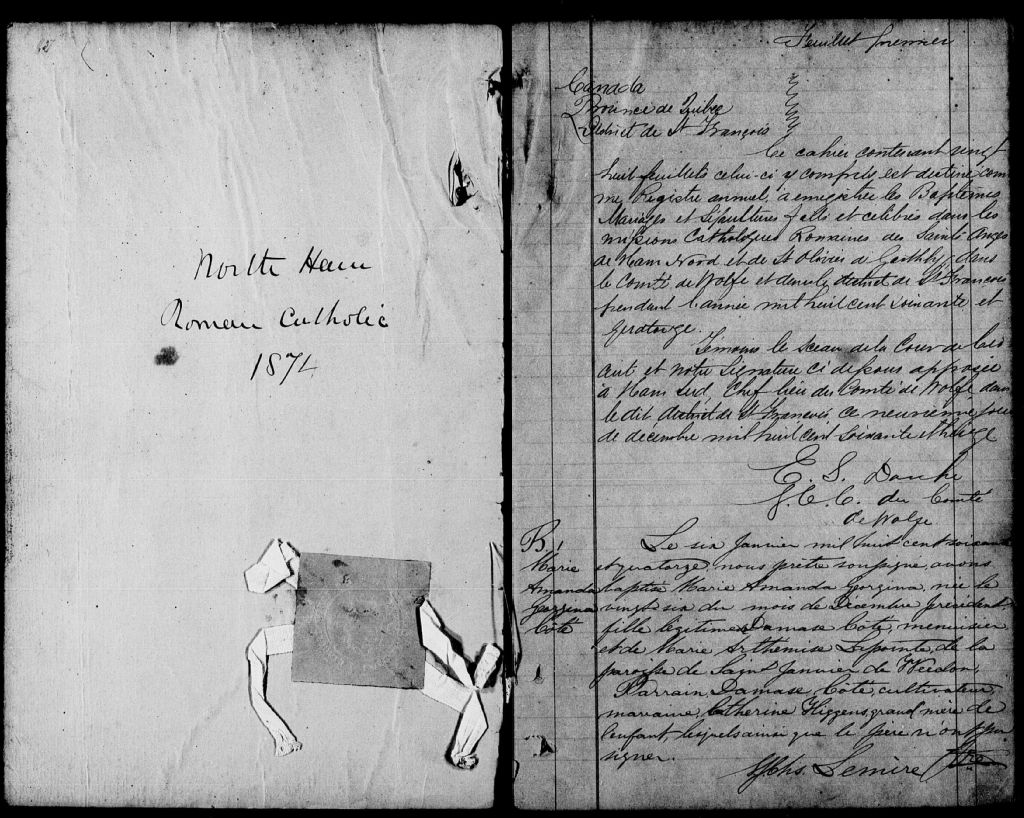 North Ham
Roman Catholic
1874
Feuillet premier
Canada
Province de Québec
District de St François
Ce cahier contenant vingt
huit feuillets celui-ci y compris, est destiné com
me Registre annuel, a enregistrer les Baptêmes
Mariages et Sépultures faits et célébrés dans les
missions Catholiques Romaines des Saints Anges
de Ham Nord et de St Olivier de Garthby, dans
le Comté de Wolfe et dans le district de St Francois
pendant l'année mil huit cent soixante et
quatorze.
Témoins le sceau de la Cour de Circ
uit et notre Signature ci dessous apposée
à Ham Sud, Chef lieu du Comté de Wolfe, dans
le dit district de St Francois, ce neuvieme jour
de décembre mil huit cent soixante et treize
E. S. Darche
G. C. C. du Comté
de Wolfe
B. 1
Marie
Amanda
Georgina
Côté
Le six Janvier mil huit cent soixante
et quatorze, nous prêtre soussigné, avons
baptisé Marie Amanda Georgina, née le
vingt six du mois de Décembre précédent
fille légitime Damase Côté, menuisier
et de Marie Arthémise Lapointe, de la
paroisse de Saint Janvier de Weedon,
Parrain, Damase Côté, cultivateur,
marraine, Catherine Higgens, grand'mère de
l'enfant, lesquels ainsi que le père n'ont pu
signer.
Lemire Ptre